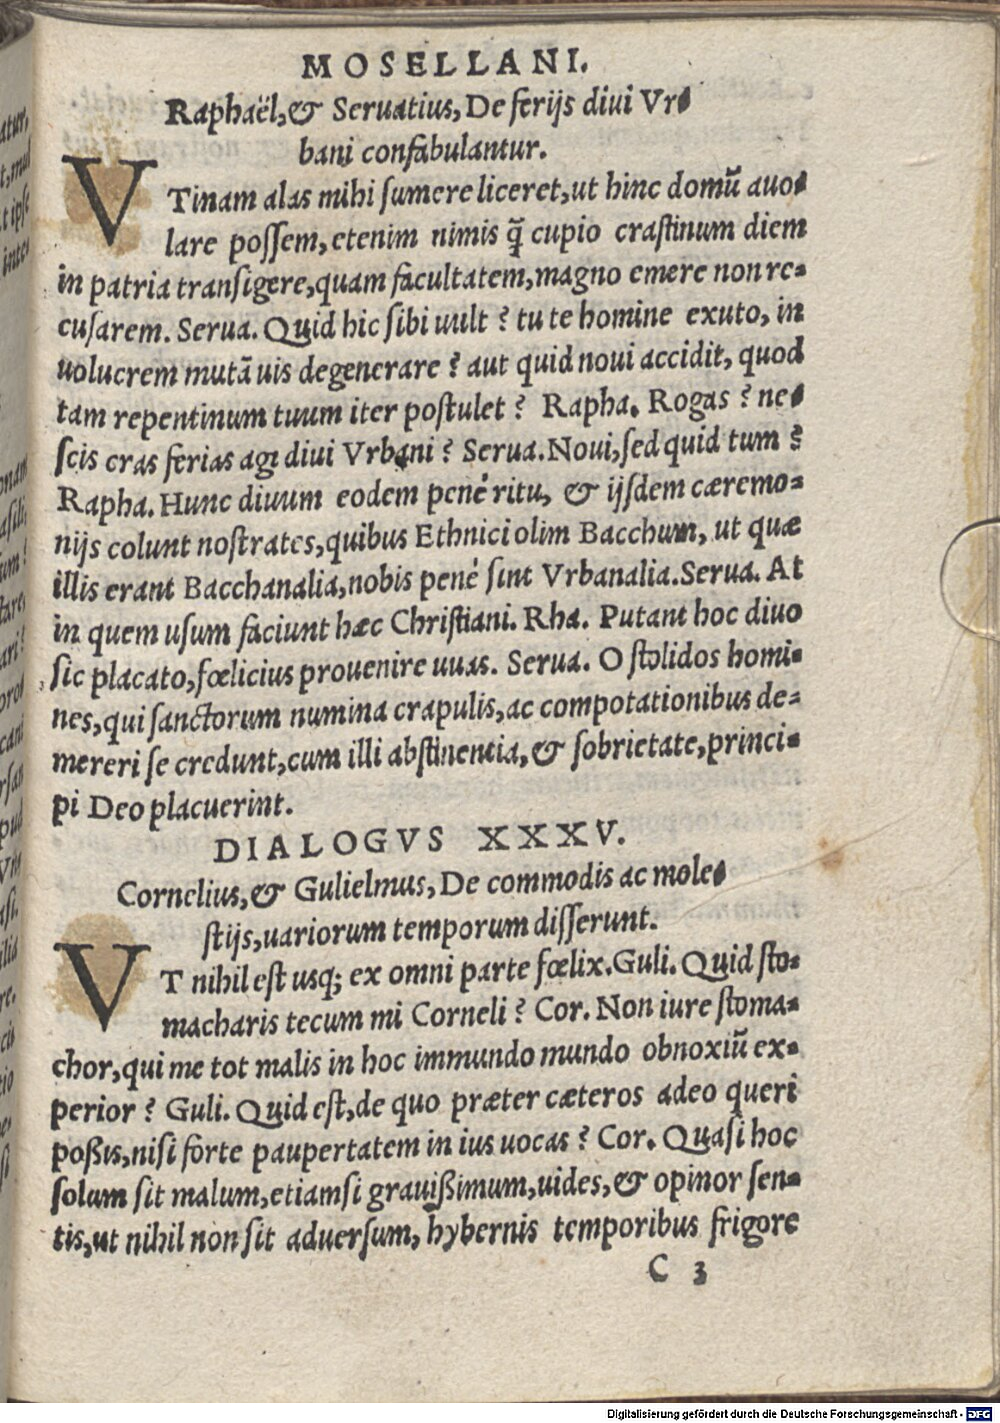 MOSELLANI.
Raphaël, & Seruatius, De ferijs diui Vr-
bani confabulantur.
VTinam alas mihi sumere liceret, ut hinc domũ auo-
lare possem, etenim nimis q̃ cupio crastinum diem
in patria transigere, quam facultatem, magno emere non re-
cusarem. Serua. Quid hic sibi uult? tu te homine exuto, in
uolucrem mutã uis degenerare? aut quid noui accidit, quod
tam repentinum tuum iter postulet? Rapha. Rogas? ne-
scis cras ferias agi diui Vrbani? Serua. Noui, sed quid tum?
Rapha. Hunc diuum eodem pené ritu, & ijsdem cæremo-
nijs colunt nostrates, quibus Ethnici olim Bacchum, ut quæ
illis erant Bacchanalia, nobis pené sint Vrbanalia. Serua. At
in quem usum faciunt hæc Christiani. Rha. Putant hoc diuo
sic placato, fœlicius prouenire uuas. Serua. O stolidos homi-
nes, qui sanctorum numina crapulis, ac compotationibus de-
mereri se credunt, cum illi abstinentia, & sobrietate, princi-
pi Deo placuerint.
DIALOGVS XXXV.
Cornelius, & Gulielmus, De commodis ac mole-
stijs, uariorum temporum disserunt.
VT nihil est usq; ex omni parte fœlix. Guli. Quid sto-
macharis tecum mi Corneli? Cor. Non iure stoma-
chor, qui me tot malis in hoc immundo mundo obnoxiũ ex-
perior? Guli. Quid est, de quo præter cæteros adeo queri
poßis, nisi forte paupertatem in ius uocas? Cor. Quasi hoc
solum sit malum, etiamsi grauißimum, uides, & opinor sen-
tis, ut nihil non sit aduersum, hybernis temporibus frigore
C 3
Digitalisierung gefördert durch die Deutsche Forschungsgemeinschaft - DFG